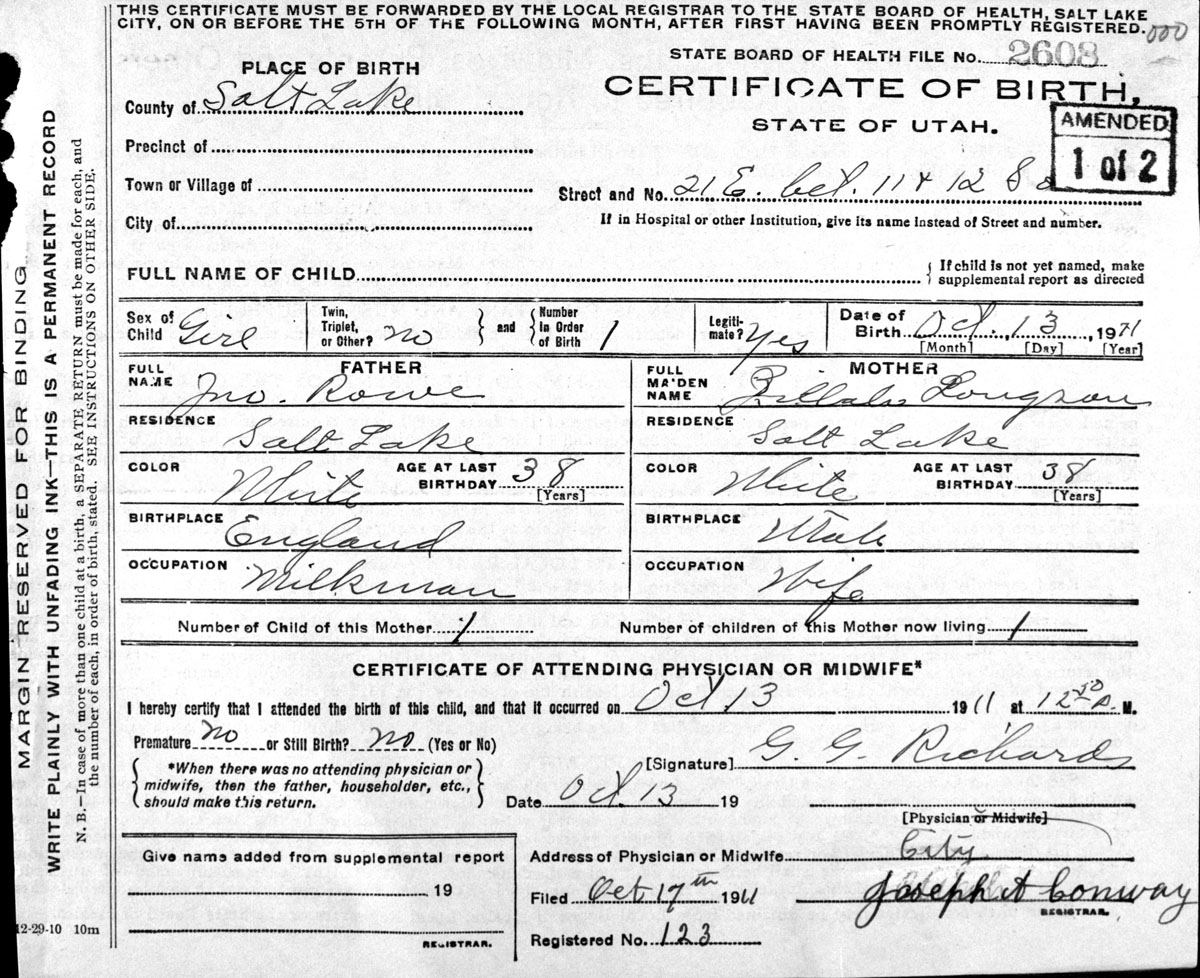 THIS CERTIFICATE MUST BE FORWARDED BY THE LOCAL REGISTRAR TO THE STATE BOARD OF HEALTH, SALT LAKE
CITY, ON OR BEFORE THE 5TH OF THE FOLLOWING MONTH, AFTER FIRST HAVING BEEN PROMPTLY REGISTERED.
000
STATE BOARD OF HEALTH FILE No. 2608
PLACE OF BIRTH
CERTIFICATE OF BIRTH,
STATE OF UTAH.
AMENDED
1 of 2
County of Salt Lake
Precinct of
Town or Village of
Street and No. 21 E. bet. 11 & 12 So
City of
If in Hospital or other Institution, give its name instead of Street and number.
FULL NAME OF CHILD
If child is not yet named, make
supplemental report as directed
Sex of Child Girl
Twin, Triplet, or Other? no
and Number In Order of Birth 1
Legiti-mate? Yes
Date of Birth Oct. 13, 1911
[Month] [Day] [Year]
FATHER
FULL NAME Jno. Rowe
MOTHER
FULL MAIDEN NAME Zillah Longson
RESIDENCE Salt Lake
RESIDENCE Salt Lake
COLOR White
AGE AT LAST BIRTHDAY 38
[Years]
COLOR White
AGE AT LAST BIRTHDAY 38
[Years]
BIRTHPLACE England
BIRTHPLACE Utah
OCCUPATION Milkman
OCCUPATION Wife
Number of Child of this Mother 1
Number of children of this Mother now living 1
CERTIFICATE OF ATTENDING PHYSICIAN OR MIDWIFE*
I hereby certify that I attended the birth of this child, and that it occurred on Oct. 13 1911 at 12 A. M.
Premature no or Still Birth? no (Yes or No)
*When there was no attending physician or
midwife, then the father, householder, etc.,
should make this return.
[Signature] G. G. Richards
Date Oct. 13 19
[Physician or Midwife]
Give name added from supplemental report
19
REGISTRAR.
Address of Physician or Midwife City
Filed Oct 17th 1911
Joseph H Conway
REGISTRAR.
Registered No. 123
12-29-10 10m
MARGIN RESERVED FOR BINDING
WRITE PLAINLY WITH UNFADING INK—THIS IS A PERMANENT RECORD
N. B.—In case of more than one child at a birth, a SEPARATE RETURN must be made for each, and
the number of each, in order of birth, stated. SEE INSTRUCTIONS ON OTHER SIDE.